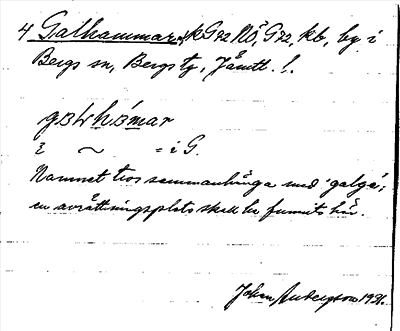 4 Galhammar, k G 92 NÖ, G 92, kb, by i
Bergs sn, Bergs tg, Jämtl. l.
i ~ = i G.
Namnet tros sammanhänga med 'galge';
en avrättningsplats skall ha funnits här.
Johan Andersson 1931.